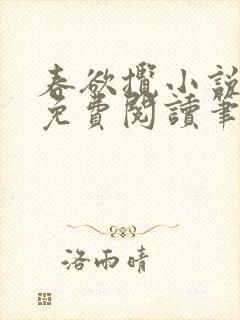 春欲攬小說
免費閱讀筆
洛雨晴